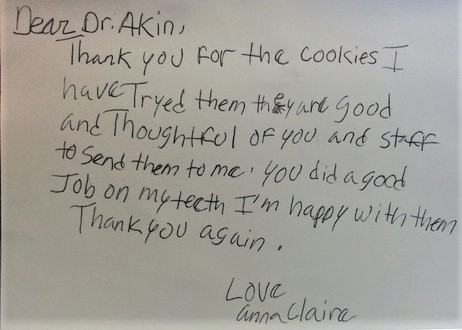 Dear Dr. Akin,
Thank you for the cookies I
have Tryed them they are good
and Thoughtful of you and staff
to send them to me. you did a good
Job on my teeth I'm happy with them
Thank you again.
Love
anna Claire